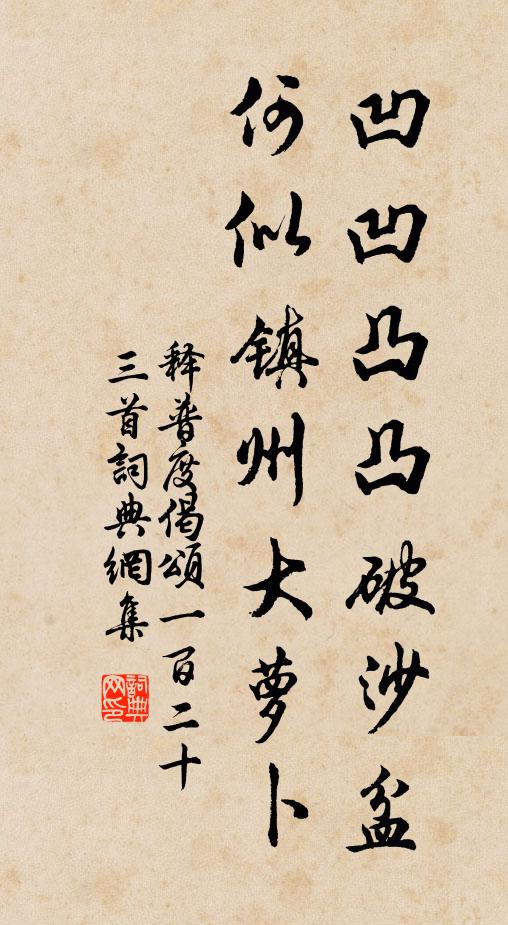 凹凹凸凸破沙盆
何似镇州大萝卜
释普度偈颂一百二十
三首詞典網集
詞典網印